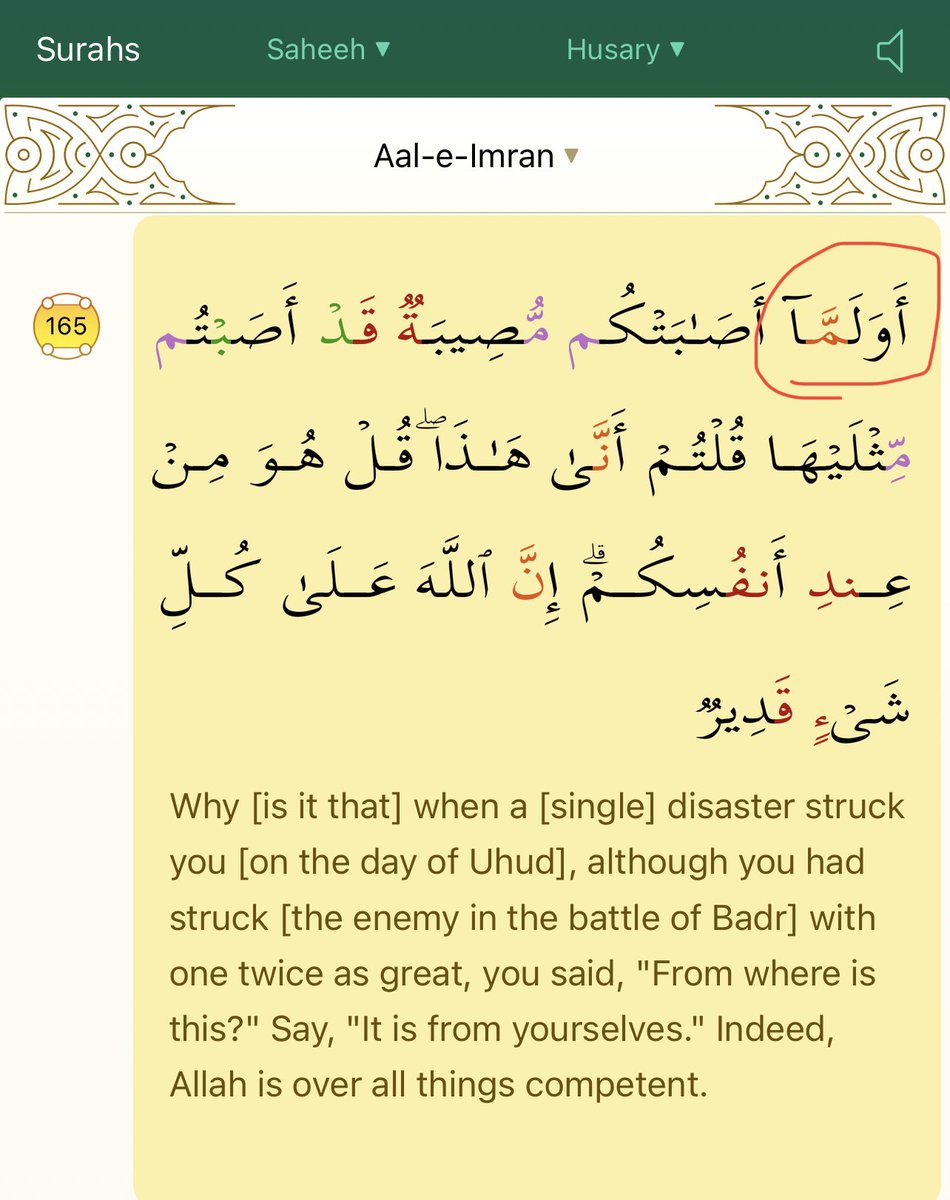 Surahs Saheeh ▼ Husary ▼
Aal-e-Imran ▼
165
أَوَلَمَّآ أَصَـٰبَتْكُم مُّصِيبَةٌ قَدْ أَصَبْتُم
مِّثْلَيْهَا قُلْتُمْ أَنَّىٰ هَـٰذَا ۖ قُلْ هُوَ مِنْ
عِندِ أَنفُسِكُمْ ۗ إِنَّ ٱللَّهَ عَلَىٰ كُلِّ
شَىْءٍ قَدِيرٌ
Why [is it that] when a [single] disaster struck
you [on the day of Uhud], although you had
struck [the enemy in the battle of Badr] with
one twice as great, you said, "From where is
this?" Say, "It is from yourselves." Indeed,
Allah is over all things competent.